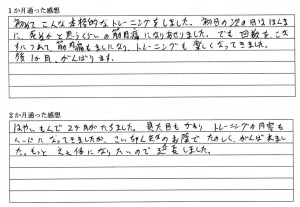 1か月通った感想
初めて こんな 本格的な トレーニングを しました。 初日の 次の日は ほんま
に、死ぬかと思うくらいの 筋肉痛に なりました。 でも 回数を こな
すにつれて、筋肉痛も ましになり、トレーニングも 楽しくなってきました。
後1か月、がんばります。
2か月通った感想
はやいもんで 2ヶ月が たちました。 見た目も かわり トレーニングの内容も
ハードに なってきましたが、 さいちゃん先生の お陰で たのしく、がんばれまし
た。もっと ええ体に なりたいので 延長しました。